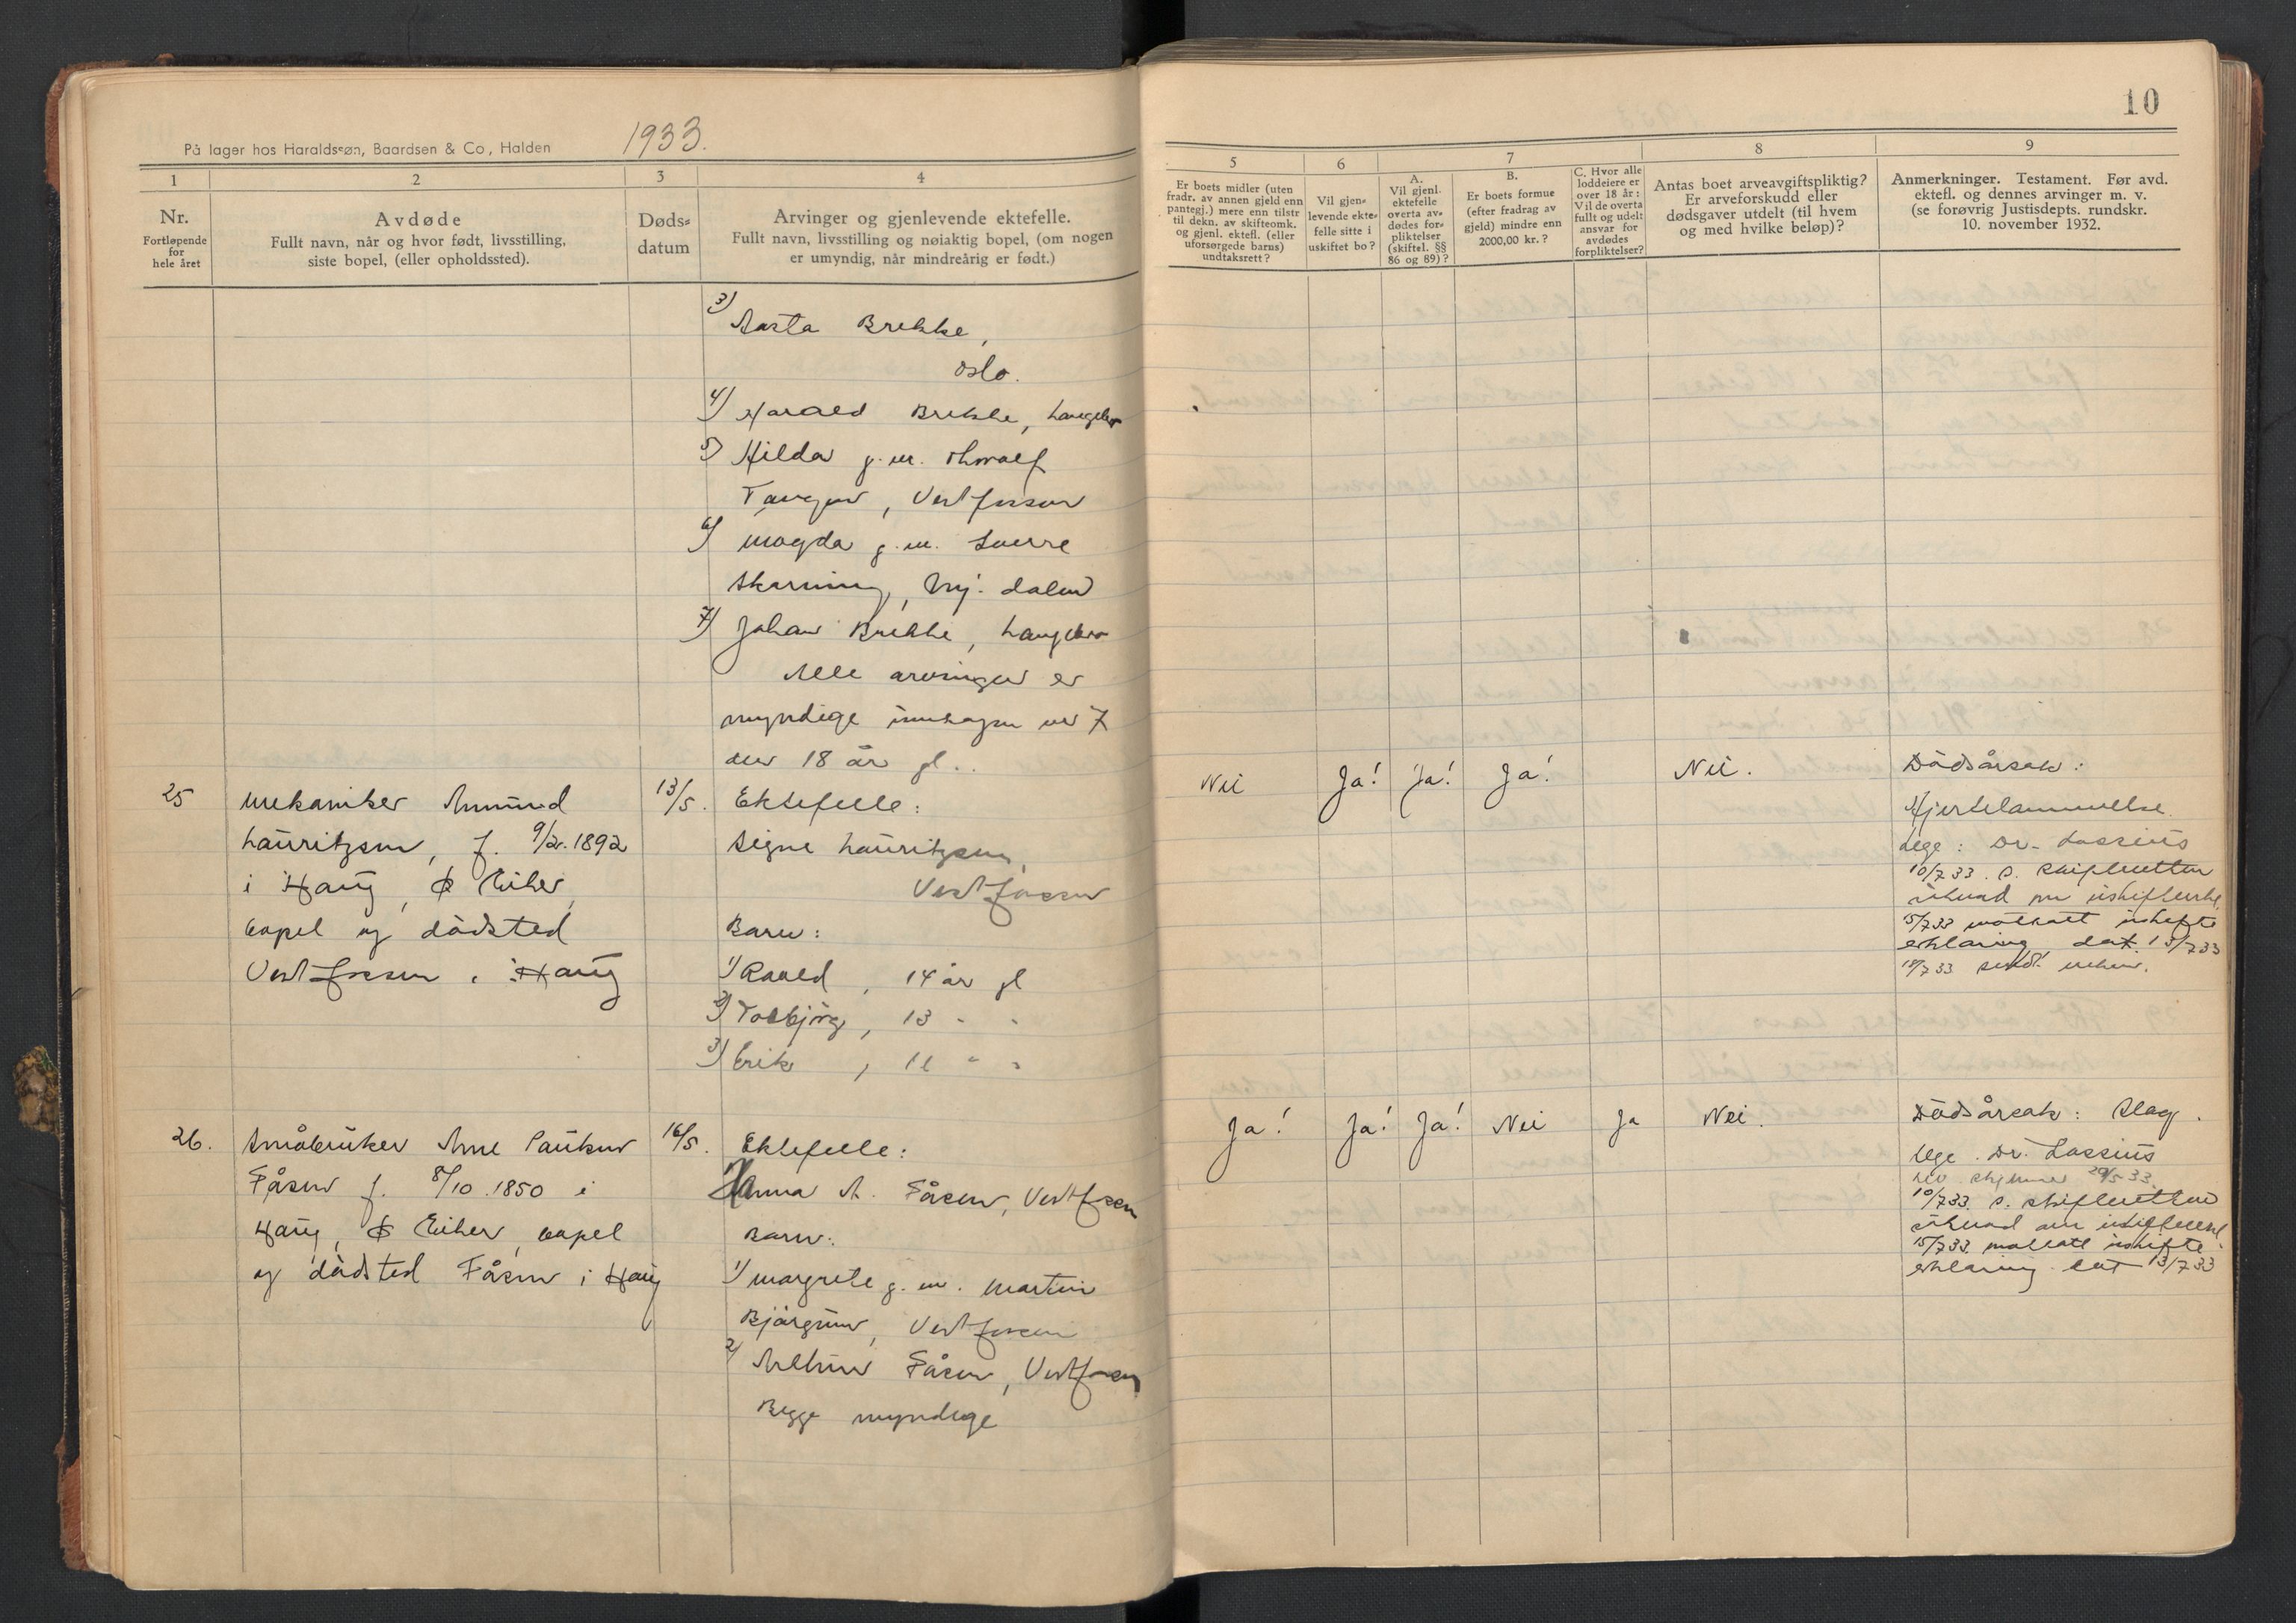 10
På lager hos Haraldssøn, Baardsen & Co, Halden
1933.
1
2
3
4
5
6
7
8
9
Nr.
Fortløpende
for
hele året
Avdøde
Fullt navn, når og hvor født, livsstilling,
siste bopel, (eller opholdssted).
Døds-
datum
Arvinger og gjenlevende ektefelle.
Fullt navn, livsstilling og nøiaktig bopel, (om nogen
er umyndig, når mindreårig er født.)
Er boets midler (uten
fradr. av annen gjeld enn
pantegj.) mere enn tilstr
til dekn. av skifteomk.
og gjenl. ektefl. (eller
uforsørgede barns)
undtaksrett?
Vil gjen-
levende ekte-
felle sitte i
uskiftet bo?
A.
Vil gjenl.
ektefelle
overta av-
dødes for-
pliktelser
(skiftel. §§
86 og 89)?
B.
Er boets formue
(efter fradrag av
gjeld) mindre enn
2000,00 kr.?
C. Hvor alle
loddeiere er
over 18 år:
Vil de overta
fullt og udelt
ansvar for
avdødes
forpliktelser?
Antas boet arveavgiftspliktig?
Er arveforskudd eller
dødsgaver utdelt (til hvem
og med hvilke beløp)?
Anmerkninger. Testament. Før avd.
ektefl. og dennes arvinger m. v.
(se forøvrig Justisdepts. rundskr.
10. november 1932.
3) Aasta Brekke,
Oslo.
4) Harald Brekke,
5) Hilda g. m. Thoralf
Vestfossen
6) Magda g. m. Sverre
Mj. dalen
7) Johan Brekke,
Alle arvinger er
myndige
18 år gl..
25
Mekaniker Amund
Lauritzen, f. 9/2. 1892
i Haug, Ø Eiker,
bopel og dödsted
Vestfossen i Haug
13/5.
Ektefelle:
Signe Lauritzen,
Vestfossen
Barn:
1) Roald, 14 år gl
2) Torbjörg, 13 - -
3) Erik, 11 - -
Nei
Ja!
Ja!
Ja!
Nei.
Dödsårsak:
Hjertelammelse.
Lege: Dr. Lassius
10/7 33. s. skifteretten
15/7 33 mottatt uskifte
erklæring dat. 13/7 33
18/7 33 sendt
26.
Småbruker Arne Paulsen
Fåsen f. 8/10. 1850 i
Haug, Ø Eiker, bopel
og dödsted Fåsen i Haug
16/5.
Ektefelle:
Anna A. Fåsen, Vestfossen
Barn:
1) Margrete g. m. Martin
Vestfossen
2) Fåsen, Vestfossen
Begge myndige
Ja!
Ja!
Ja!
Nei
Ja
Nei.
Dödsårsak: Slag.
Lege. Dr. Lassius
29/5 33.
10/7 33. s. skifteretten
15/7 33. mottatt uskifte
erklæring dat 13/7 33